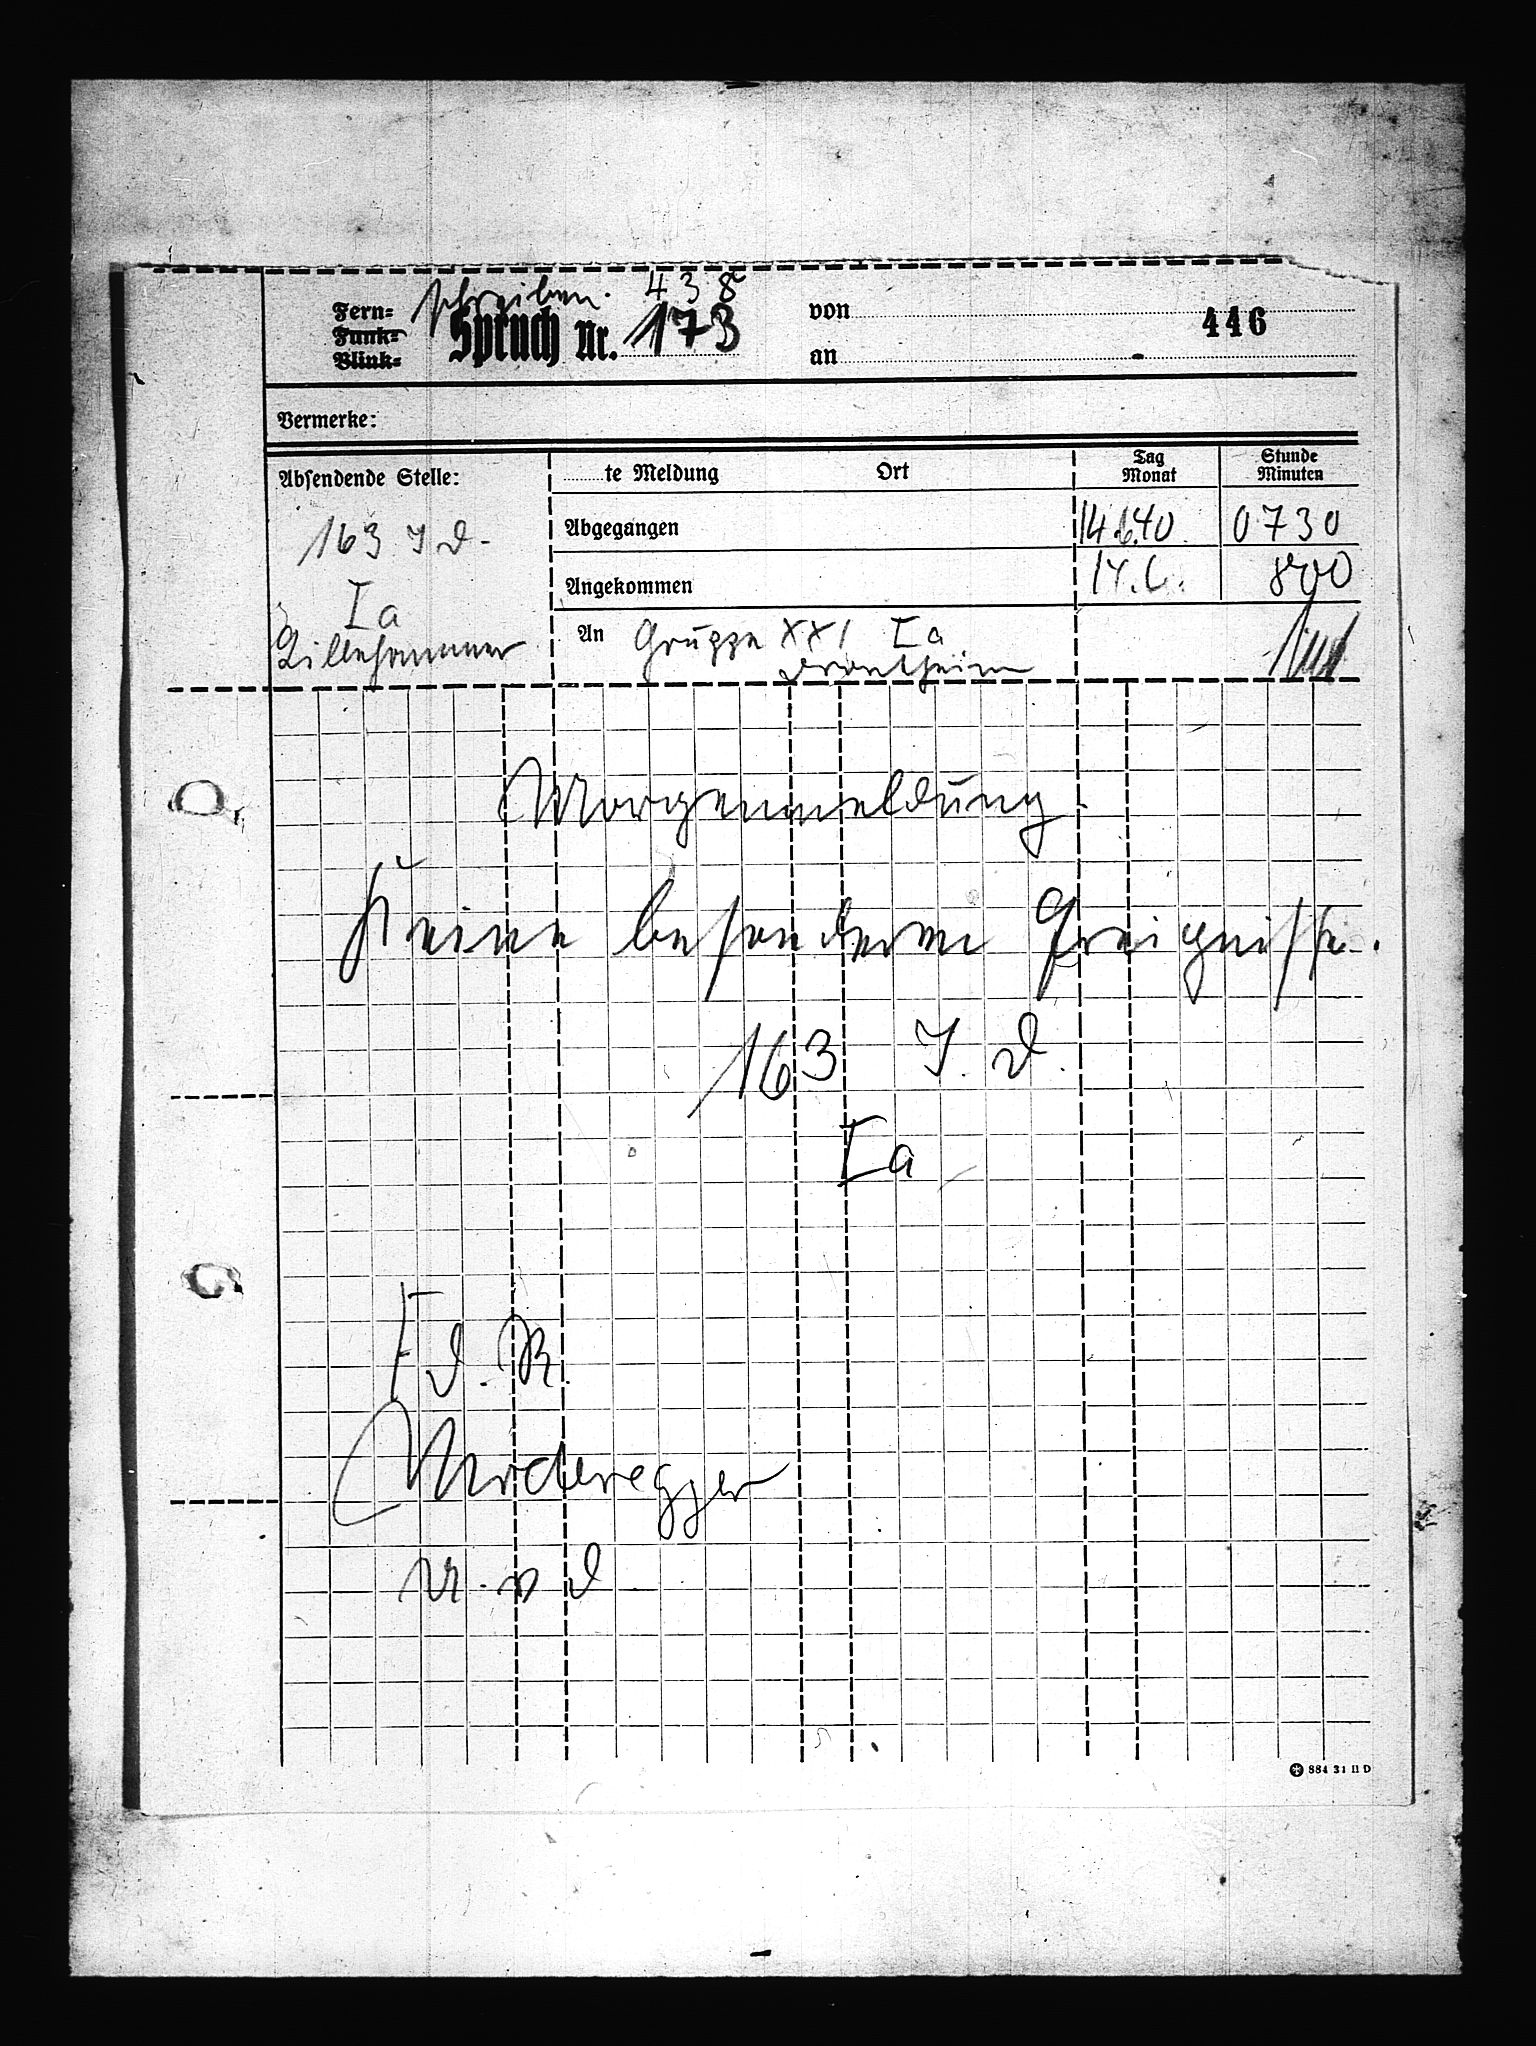 schreiben. 438
Fern=
Funk= Spruch Nr. 173
Blink=
von 446
an
Vermerke:
Absendende Stelle:
te Meldung Ort Tag Monat Stunde Minuten
Abgegangen 14.6.40. 0730
163 I D.
Angekommen 14.6. 800
Ia
Lillehammer
An Gruppe XXI Ia
Drontheim
Morgenmeldung.
Keine besonderen Ereignisse.
163 I. D.
Ia
F.d.R.
Niederegger
U.v.D
884 31 II D